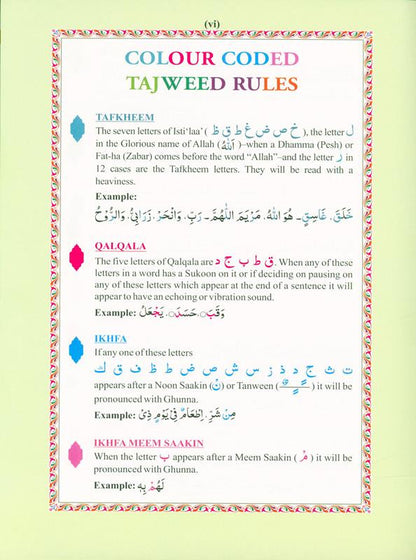 (vi)
COLOUR CODED
TAJWEED RULES
TAFKHEEM
The seven letters of Isti'laa' ( خ ص ض غ ط ق ظ ), the letter ل
in the Glorious name of Allah ( اَللهُ ) –when a Dhamma (Pesh) or
Fat-ha (Zabar) comes before the word "Allah"–and the letter ر in
12 cases are the Tafkheem letters. They will be read with a
heaviness.
Example:
خَلَقَ، غَاسِقٍ- هُوَ اللهُ، مَرْيَمَ اللّٰهُمَّ- رَبِّ، وَانْحَرْ، زَرَابِيُّ، وَالرُّوْحُ
QALQALA
The five letters of Qalqala are ق ط ب ج د. When any of these
letters in a word has a Sukoon on it or if deciding on pausing on
any of these letters which appear at the end of a sentence it will
appear to have an echoing or vibration sound.
Example: وَقَبَ، حَسَدَ، يَجْعَلُ
IKHFA
If any one of these letters
ت ث ج د ذ ز س ش ص ض ط ظ ف ق ك
appears after a Noon Saakin (نْ) or Tanween ( ـًـٍـٌ ) it will be
pronounced with Ghunna.
Example: مِنْ شَرِّ، اِطْعَامٌ فِيْ يَوْمٍ ذِيْ
IKHFA MEEM SAAKIN
When the letter ب appears after a Meem Saakin ( مْ ) it will be
pronounced with Ghunna.
Example: لَهُمْ بِهٖ